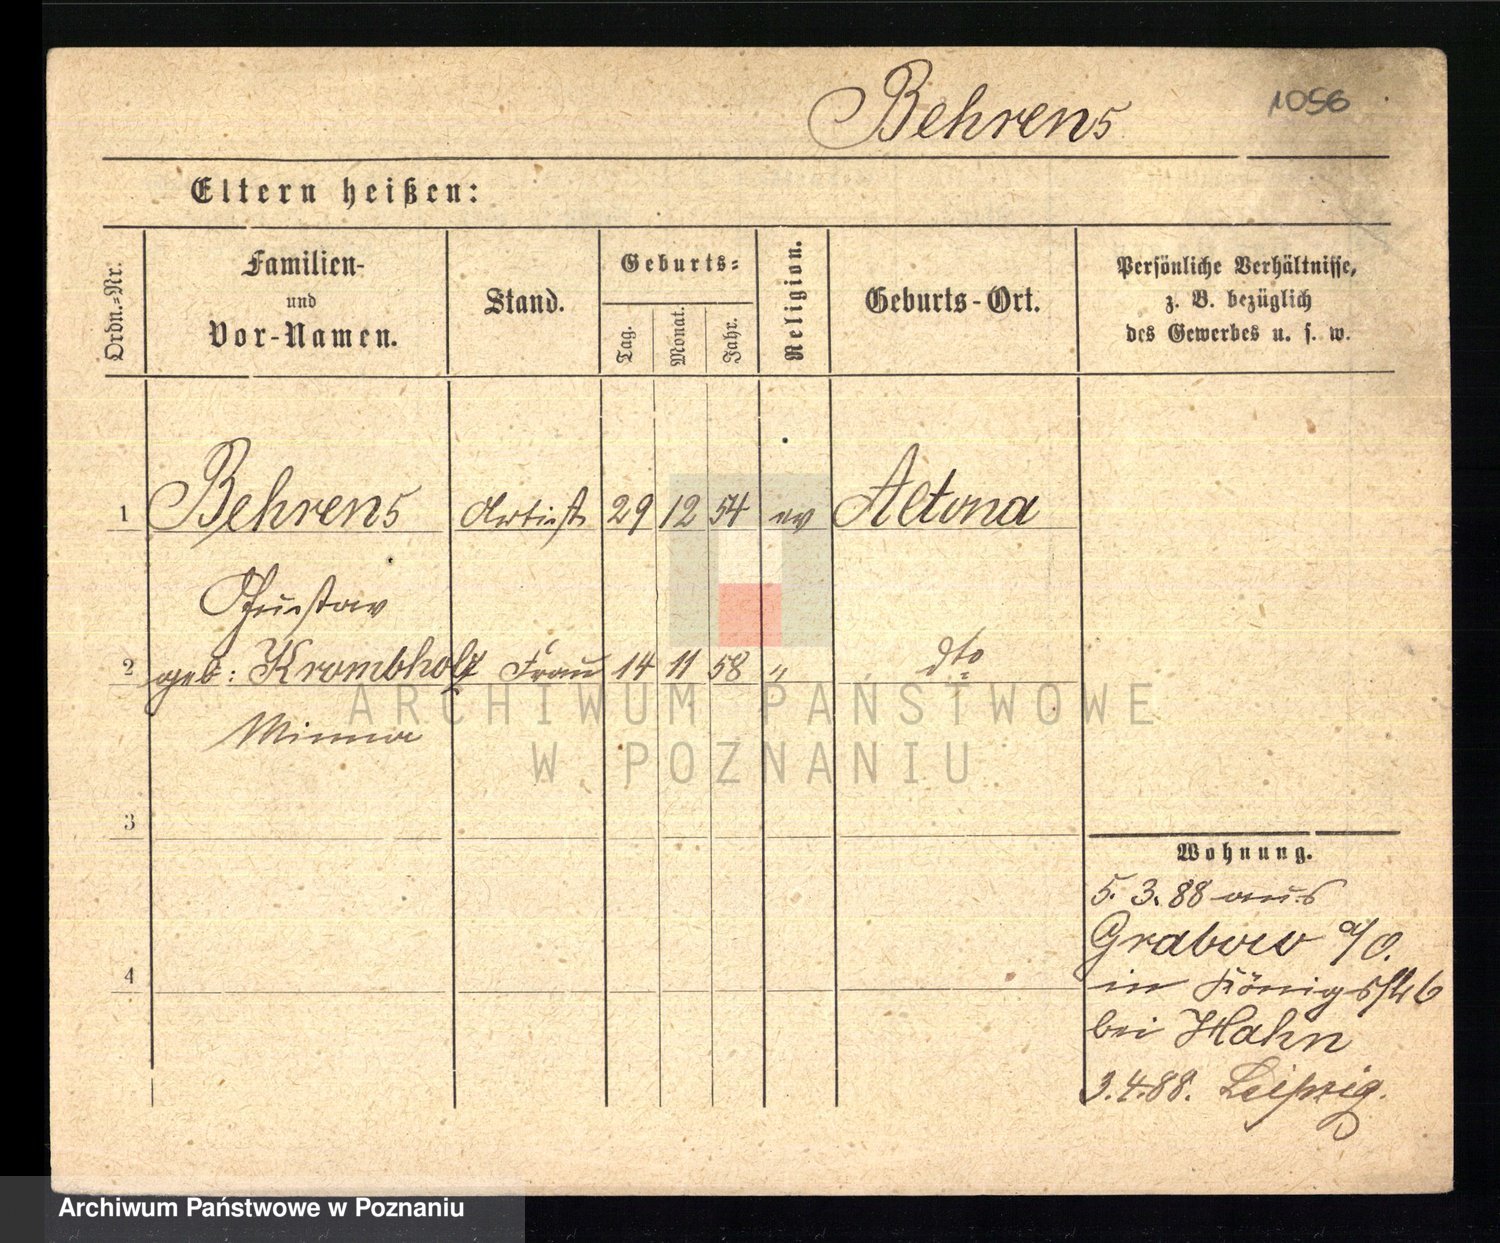 1056
Behrens
Eltern heißen:
Ordn.-Nr.
Familien-
und
Vor-Namen.
Stand.
Geburts-
Tag.
Monat.
Jahr.
Religion.
Geburts-Ort.
Persönliche Verhältnisse,
z. B. bezüglich
des Gewerbes u. s. w.
1 Behrens Artist 29 12 54 ev Altona
Gustav
2 geb: Krombholz Frau 14 11 58 " dto
Minna
3
4
Wohnung.
5. 3. 88 aus
Grabow a/O.
in Königsstr 6
bei Hahn
3. 4. 88. Leipzig.
ARCHIWUM PAŃSTWOWE
W POZNANIU
Archiwum Państwowe w Poznaniu